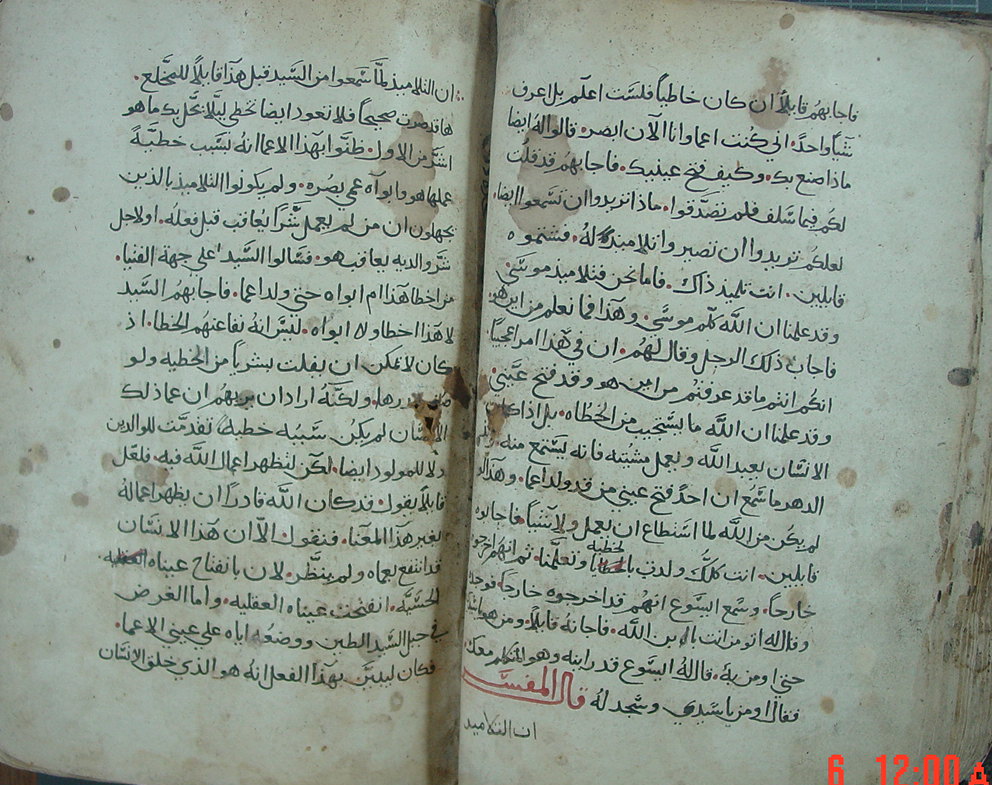 فاجابهم قايلاً ان كان خاطياً فلست اعلم بل اعرف
شيًا واحدًا. اني كنت اعما وانا الآن ابصر. قالوا له ايضا
ماذا صنع بك. وكيف فتح عينيك. فاجابهم قد قلت
لكم فيما سلف فلم تصدقوا. ماذا تريدوا ان تسمعوا ايضا.
لعلكم تريدوا ان تصيروا تلاميذ له. فشتموه
قايلين. انت تلميذ ذاك. فاما نحن فتلاميذ موسى
وقد علمنا ان الله كلّم موسى. وهذا فما نعلم من اين هو
فاجاب ذلك الرجل وقال لهم. ان في هذا امر عجيبًا.
انكم انتم ما قد عرفتم من اين هو وقد فتح عينَي.
وقد علمنا ان الله ما يستجيب من الخطاه. بل اذا كان
الانسان يعبد الله ويعمل مشيته فانه يستمع منه. ولم
الدهر ما سُمع ان احدًا فتح عيني من قد ولد اعما. وهذا لو
لم يكن من الله لما استطاع ان يعمل ولا شيًا فاجابوه
قايلين. انت كلّك ولدت بالخطية وتعلّمنا. ثم انهم اخرجوه
خارجاً. وسمع ايسوع انهم قد اخرجوه خارجًا. فوجده
وقال له اتومن انت بابن الله. فاجابه قايلاً. ومن هو ايضا
حتي اومن به. قال له ايسوع قد رايته وهو المتكلم معك.
فقال اومن يا سيدي وسجد له قال المفسر
ان التلاميذ
ان التلاميذ لمّا سمعوا من السيد قبل هذا قايلاً للمخلع.
ها قد صرت صحيحاً فلا تعود ايضا تخطي ليلا يحل بك ما هو
اشر من الاول. ظنوا بهذا الاعما انه بسبب خطيّة
عملها هو وابواه عمي بصره. ولم يكونوا التلاميذ بالذين
يجهلون ان من لم يعمل شرًا يُعاقب قبل فعله. او لاجل
شر والديه يعاقب هو. فسالوا السيد علي جهة الفتيا.
من اخطا هذا ام ابواه حتي ولد اعما. فاجابهم السيد
لا هذا اخطا ولا ابواه. ليس انه نفا عنهم الخطا. اذ
كان لا يمكن ان يفلت بشريا من الخطيه ولو
ولكنه اراد ان يريهم ان عما ذلك
الانسان لم يكن سببه خطية تقدمت للوالدين
ولا للمولود ايضا. لكن لتظهر اعمال الله فيه. فلعل
قايلاً يقول. قد كان الله قادرًا ان يظهر اعماله
بغير هذا المعنا. فنقول. الا ان هذا الانسان
قد انتفع بعماه ولم ينضر. لان بانفتاح عيناه
الحسيّه. انفتحت عيناه العقليه. واما الغرض
في جبل السيد الطين ووضعه اياه علي عيني الاعما.
فكان ليبين بهذا الفعل انه هو الذي خلق الانسان
6 12:00